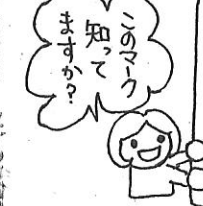 このマーク
知って
ますか?